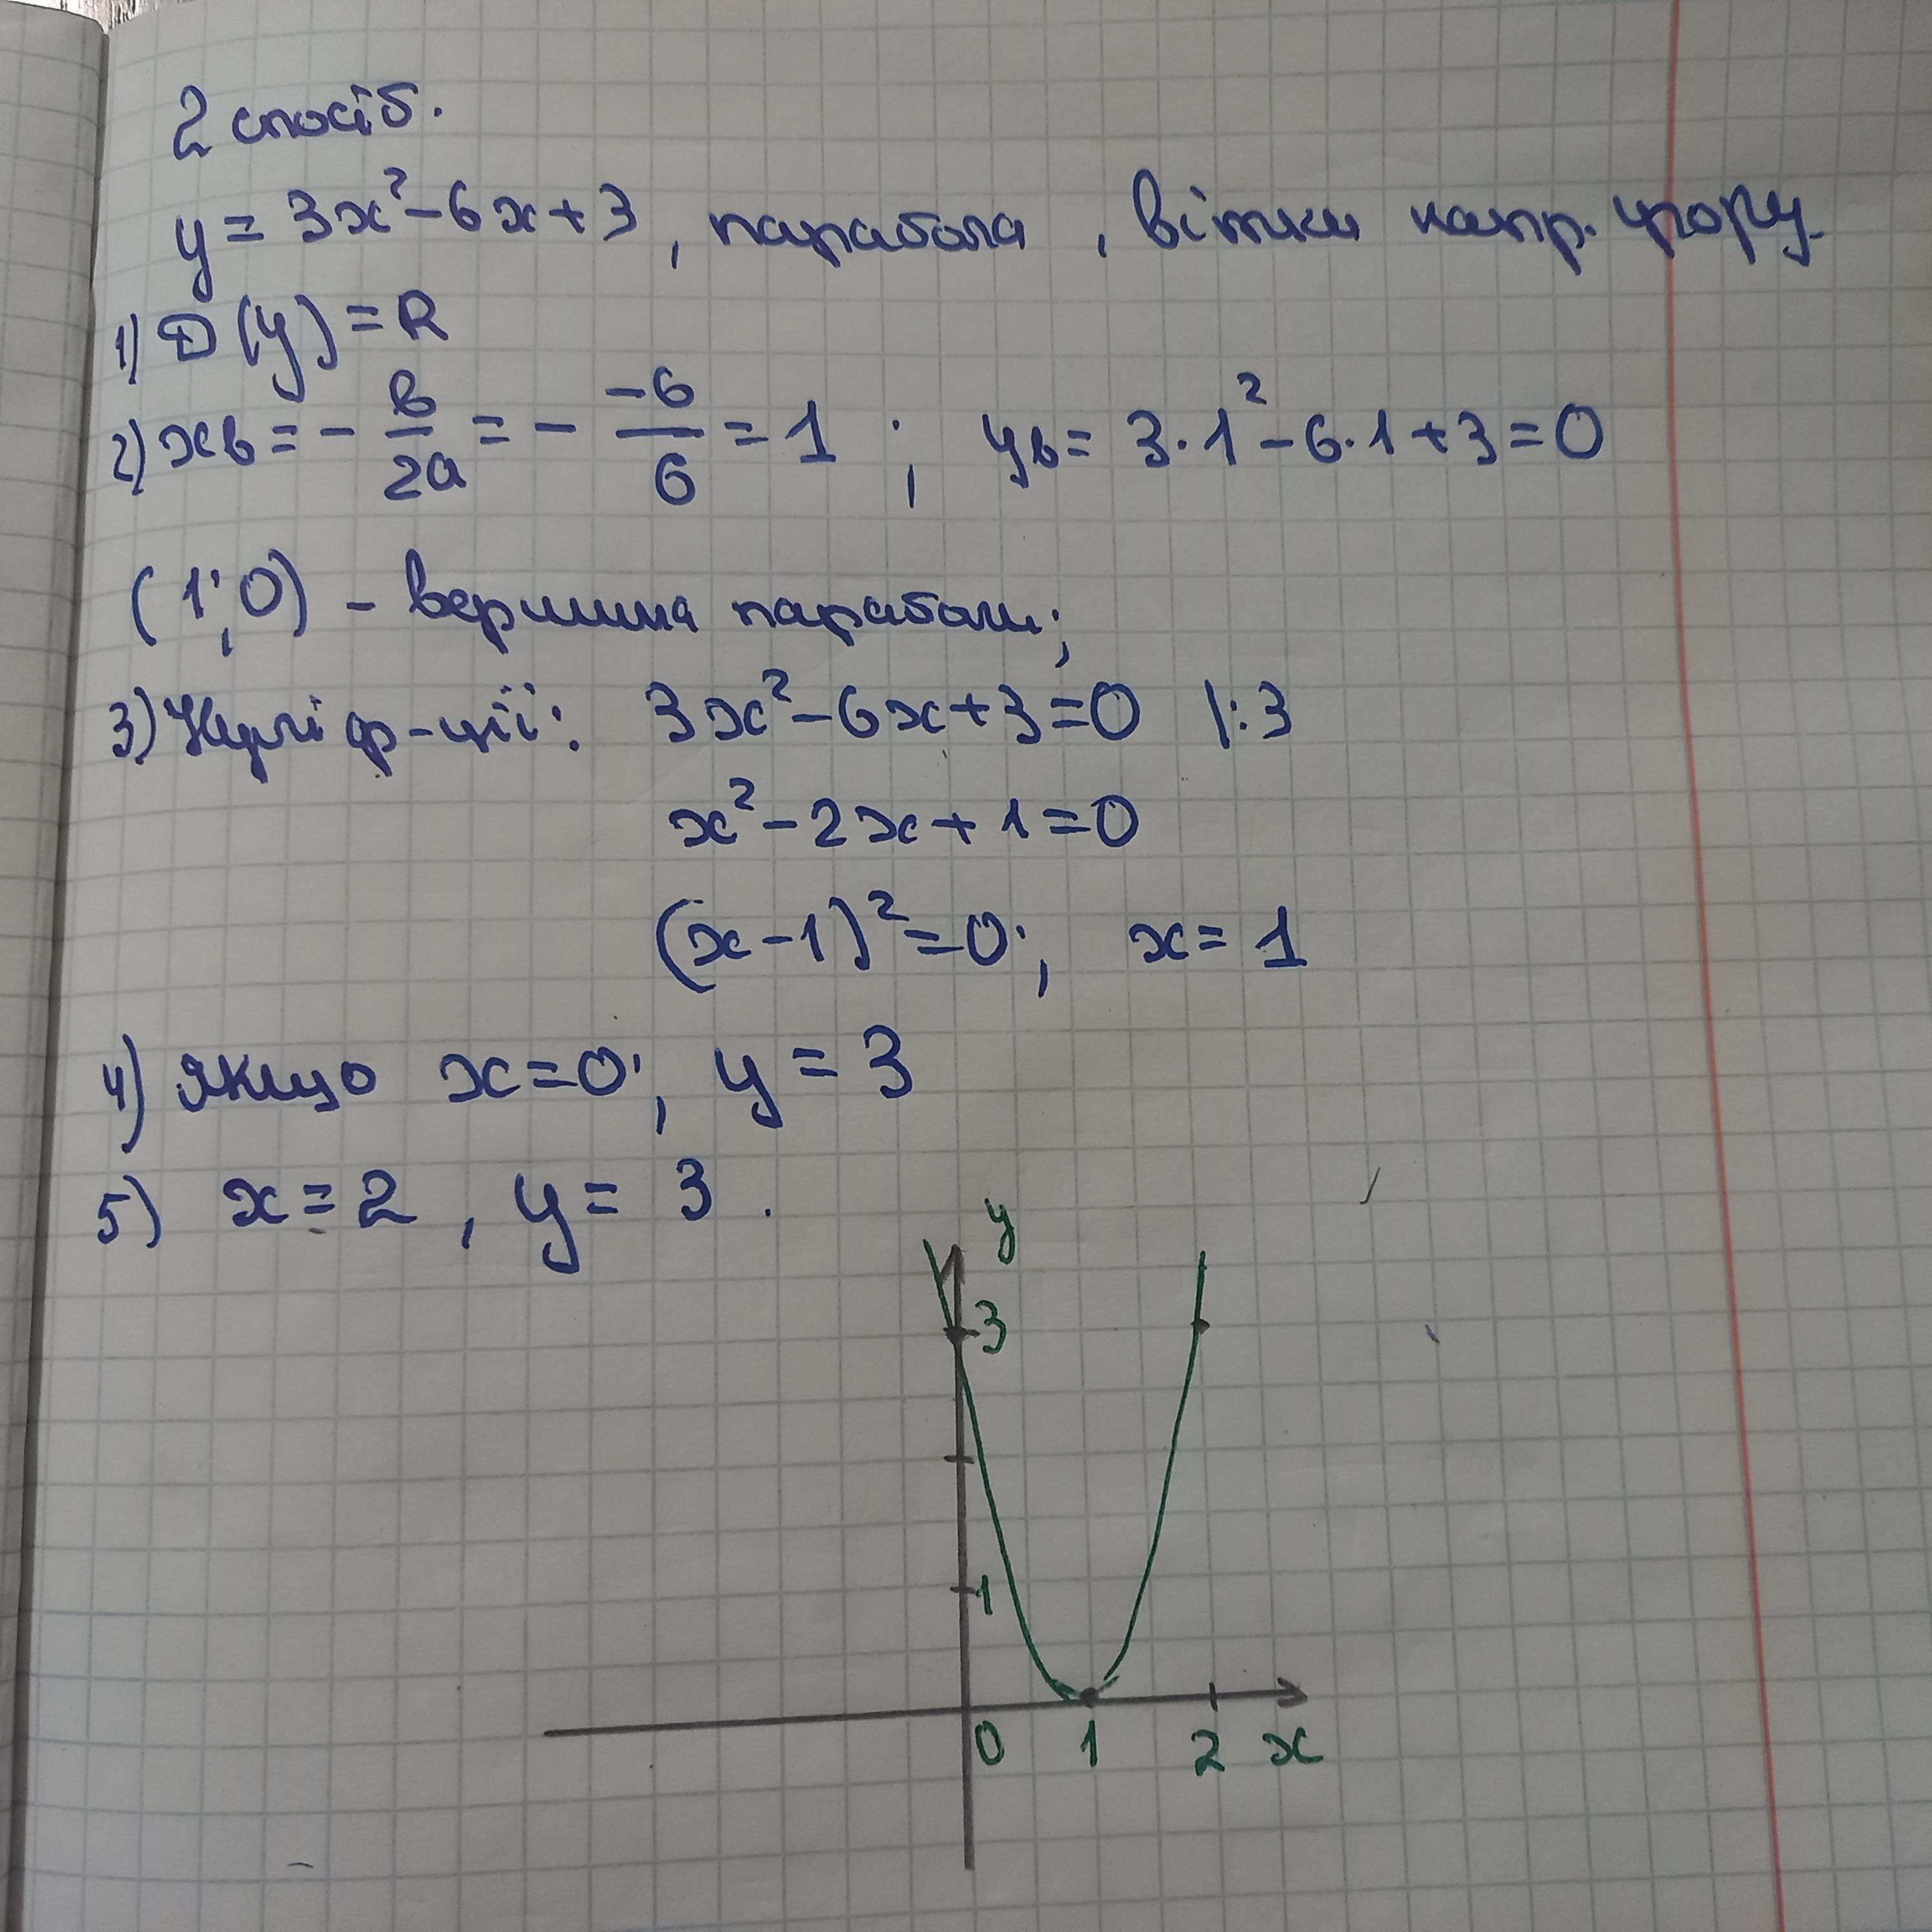 2 спосіб.
y = 3x² - 6x + 3, парабола, вітки напр. угору.
1) D(y) = R
2) xв = - в/2a = - -6/6 = 1 ; yв = 3·1² - 6·1 + 3 = 0
(1; 0) - вершина параболи;
3) Нулі ф-ції: 3x² - 6x + 3 = 0 |:3
x² - 2x + 1 = 0
(x - 1)² = 0; x = 1
4) якщо x = 0; y = 3
5) x = 2, y = 3.
y
3
1
0 1 2 x